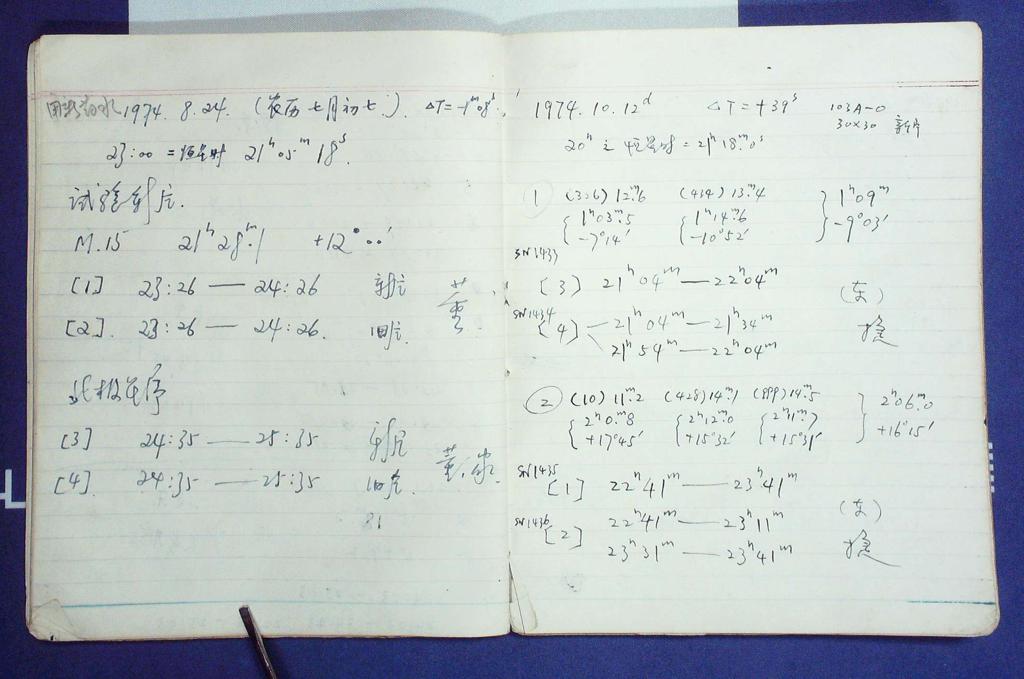 1974. 8. 24. (农历七月初七). ΔT=-1ᵐ08ˢ
23:00 = 恒星时 21ʰ05ᵐ18ˢ.
试验新片.
M.15 21ʰ28ᵐ.1 +12°00′
[1] 23:26 — 24:26 新片
[2]. 23:26 — 24:26. 旧片.
董
北极星序
[3] 24:35 — 25:35 新片
[4]. 24:35 — 25:35 旧片.
董
81
1974. 10. 12ᵈ ΔT=+39ˢ 103A-O
30×30 新片
20ʰ 之恒星时=21ʰ18ᵐ.0ˢ
① (326) 12ᵐ.6 (434) 13ᵐ.4
1ʰ03ᵐ.5 1ʰ14ᵐ.6 1ʰ09ᵐ
-7°14′ -10°52′ -9°03′
SN1433
[3] 21ʰ04ᵐ — 22ʰ04ᵐ
(东)
SN1434
[4] 21ʰ04ᵐ — 21ʰ34ᵐ
21ʰ54ᵐ — 22ʰ04ᵐ
② (10) 11ᵐ.2 (428) 14ᵐ.1 (999) 14ᵐ.5
2ʰ0ᵐ.8 2ʰ12ᵐ.0 2ʰ11ᵐ.7 2ʰ06ᵐ.0
+17°45′ +15°32′ +15°31′ +16°15′
SN1435
[1] 22ʰ41ᵐ — 23ʰ41ᵐ
(东)
SN1436
[2] 22ʰ41ᵐ — 23ʰ11ᵐ
23ʰ31ᵐ — 23ʰ41ᵐ